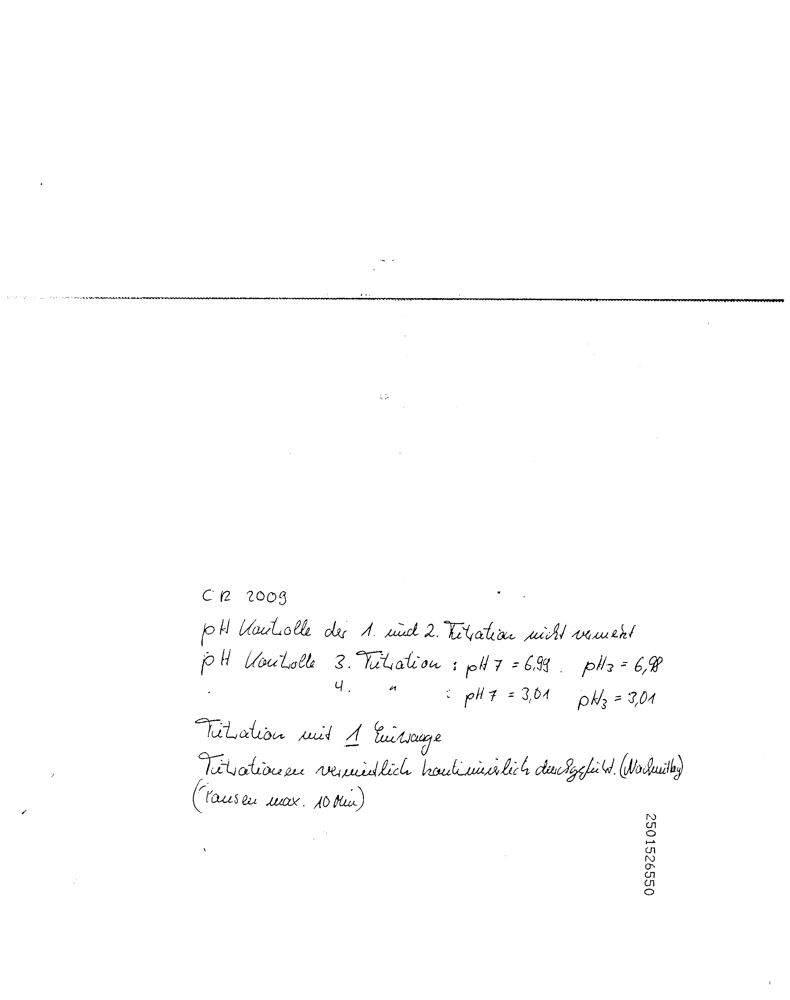 CR 2009
pH Kontrolle der 1. und 2. Titration nicht vermerkt
pH Kontrolle 3. Titration : pH 7 = 6,99 . pH3 = 6,98
4. " : pH 7 = 3,01 pH3 = 3,01
Titration mit 1 Einwaage
Titrationen vermutlich kontinuierlich durchgeführt. (Nachmittag)
(Pausen max. 10 Min)
2501526550